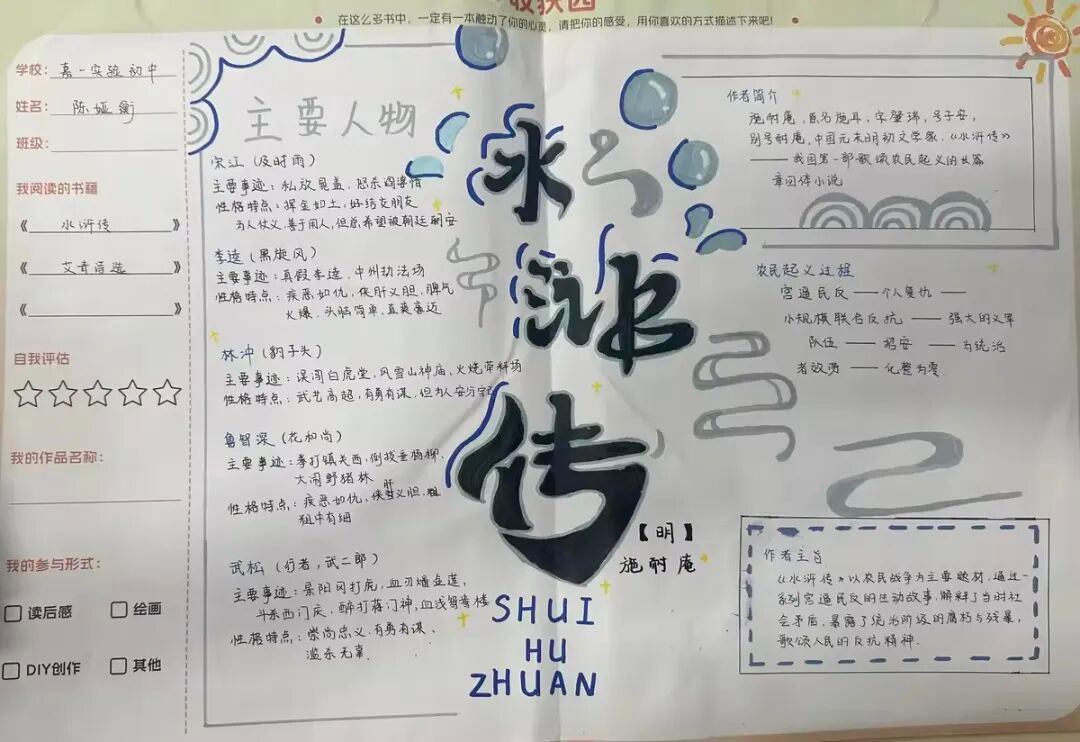 收获园
在这么多书中，一定有一本触动了你的心灵，请把你的感受，用你喜欢的方式描述下来吧！
学校：嘉一实验初中
姓名：陈娅衡
班级：
我阅读的书籍
《水浒传》
《艾青诗选》
《 》
自我评估
我的作品名称：
我的参与形式：
读后感
绘画
DIY创作
其他
主要人物
宋江（及时雨）
主要事迹：私放晁盖，怒杀阎婆惜
性格特点：挥金如土，好结交朋友
为人仗义，善于用人，但总希望被朝廷招安
李逵（黑旋风）
主要事迹：真假李逵，中州劫法场
性格特点：疾恶如仇，侠肝义胆，脾气
火爆，头脑简单，直爽豪迈
林冲（豹子头）
主要事迹：误闯白虎堂，风雪山神庙，火烧草料场
性格特点：武艺高超，有勇有谋，但为人安分守己
鲁智深（花和尚）
主要事迹：拳打镇关西，倒拔垂杨柳，
大闹野猪林
性格特点：疾恶如仇，侠肝义胆，粗
粗中有细
武松（行者，武二郎）
主要事迹：景阳冈打虎，血刃潘金莲，
斗杀西门庆，醉打蒋门神，血溅鸳鸯楼
性格特点：崇尚忠义，有勇有谋、
滥杀无辜
水浒传
【明】
施耐庵
SHUI
HU
ZHUAN
作者简介
施耐庵，原名施耳，字肇瑞，号子安，
别号耐庵，中国元末明初文学家，《水浒传》
——我国第一部歌颂农民起义的长篇
章回体小说
农民起义过程
官逼民反——个人复仇——
小规模联合反抗——强大的义军
队伍——招安——为统治
者效劳——化整为零
作者主旨
《水浒传》以农民战争为主要题材，通过一
系列官逼民反的生动故事，解释了当时社
会矛盾，暴露了统治阶级的腐朽与残暴，
歌颂人民的反抗精神.